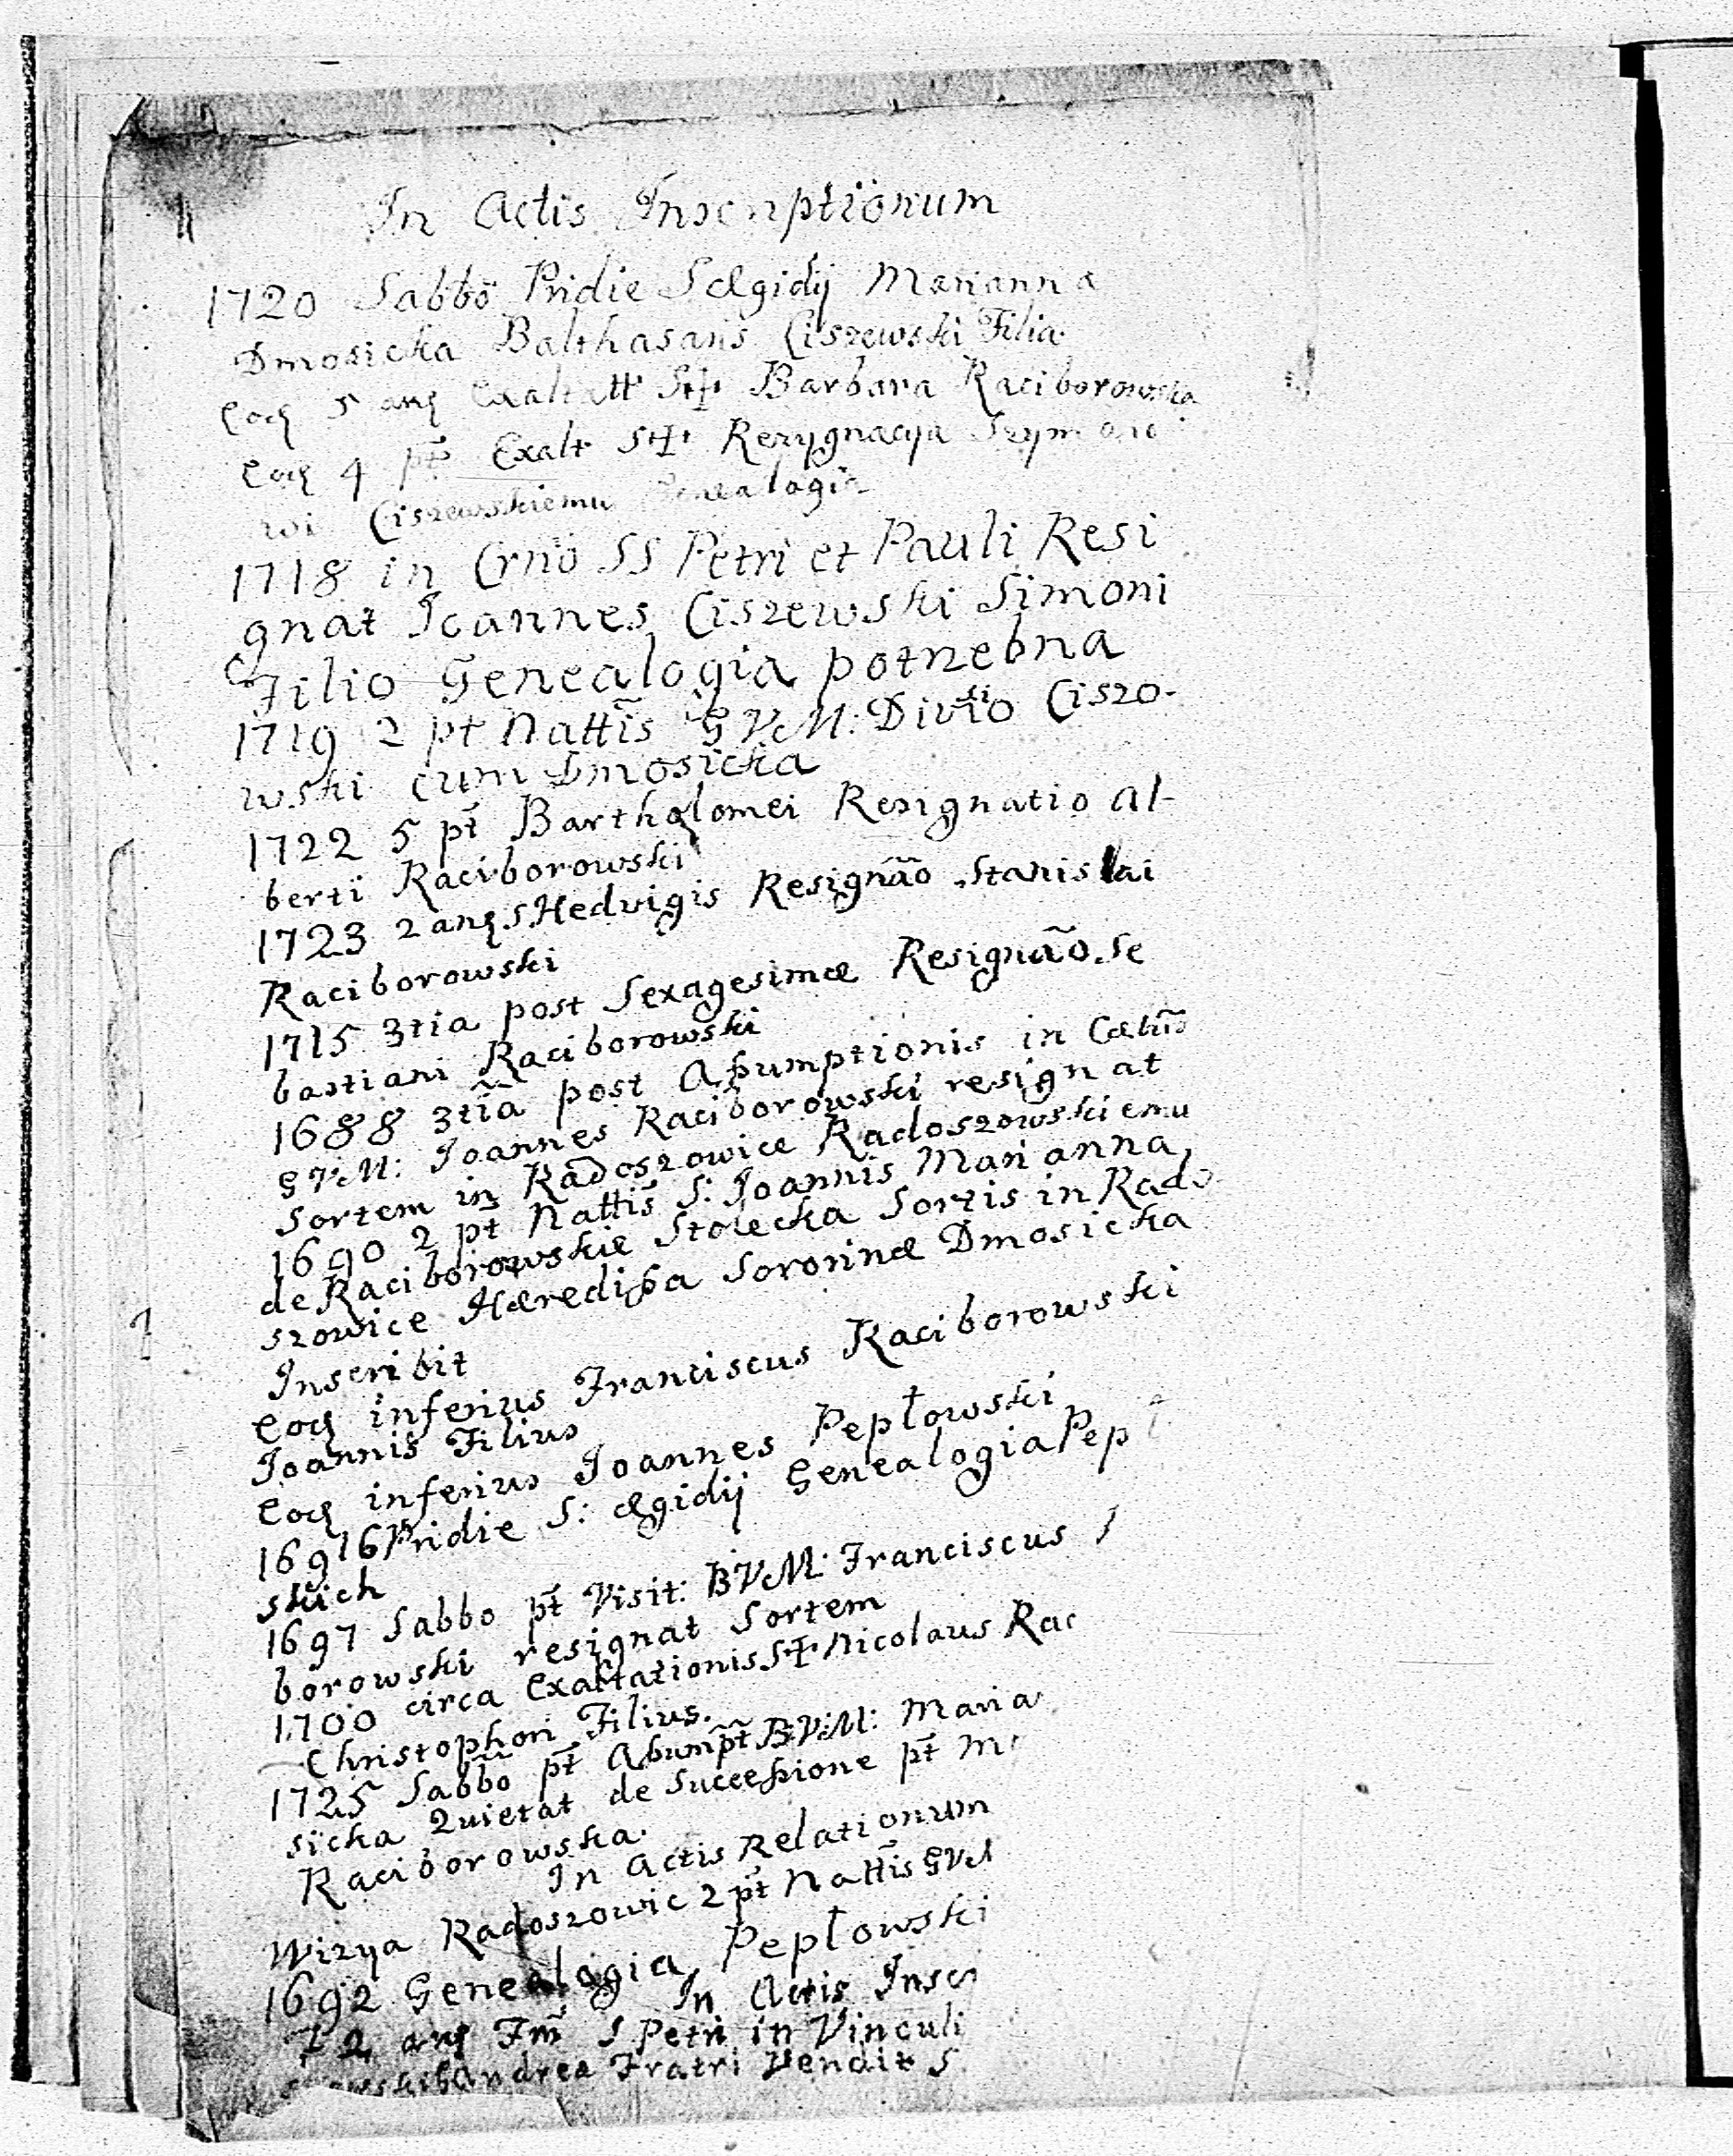 In Actis Inscriptionum
1720 Sabbo Pridie S Ægidij Marianna
Dmosicka Balthasaris Ciszewski Filia
Eoq 5 anq Exaltatt S✝ Barbara Raciborowska
Eoq 4 pt Exalt S✝ Rezygnacya Szymono
wi Ciszewskiemu Genealogia
1718 in Crno SS Petri et Pauli Resi
gnat Joannes Ciszewski Simoni
Filio Genealogia potrzebna
1719 2 pt Nattis B V M: Divisio Ciszo-
wski cum Dmosicka
1722 5 pt Bartholomei Resignatio Al-
berti Raciborowski
1723 2 anq S. Hedvigis Resignão Stanislai
Raciborowski
1715 3tia post Sexagesimæ Resignão Se
bastiani Raciborowski
1688 3tia post Aßumptionis in Cælũ
B V M: Joannes Raciborowski resignat
Sortem in Radoszowice Radoszowskiemu
1690 2 pt Nattis S: Joannis Marianna
de Raciborowskie Stolecka Sortis in Rado
szowice Hæredißa Sororinæ Dmosicka
Inscribit
Eoq inferius Franciscus Raciborowski
Joannis Filius
Eoq inferius Joannes Pepłowski
1696 Pridie S: Ægidij Genealogia Pep
skich
1697 Sabbo pt Visit: BVM: Franciscus
borowski resignat Sortem
1700 circa Exaltationis S✝ Nicolaus Rac
Christophori Filius.
1725 Sabbo pt Aßumpt B:V:M: Maria
sicka Quietat de Succeßione pt M
Raciborowska.
In Actis Relationum
Wizya Radoszowic 2 pt Nattis BVM
1692 Genealogia Pepłowski
In Actis Inscr
2 anq Fm S Petri in Vinculi
Andrea Fratri Vendit S